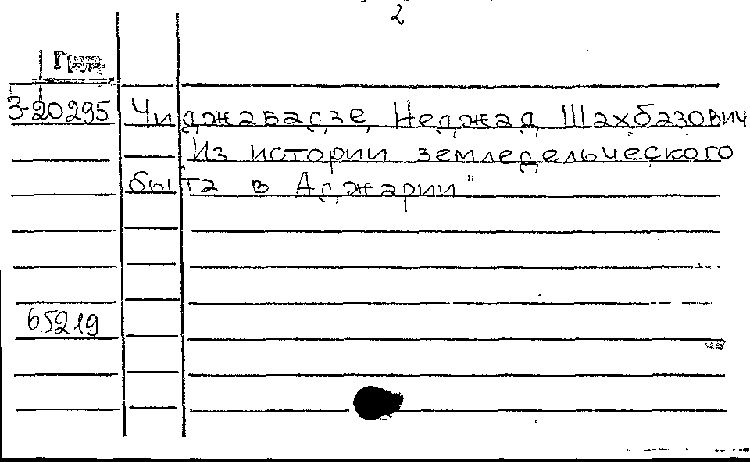 2
3-20295 Чиджавадзе, Неджад Шахбазович
Из истории земледельческого
быта в Аджарии"
65219